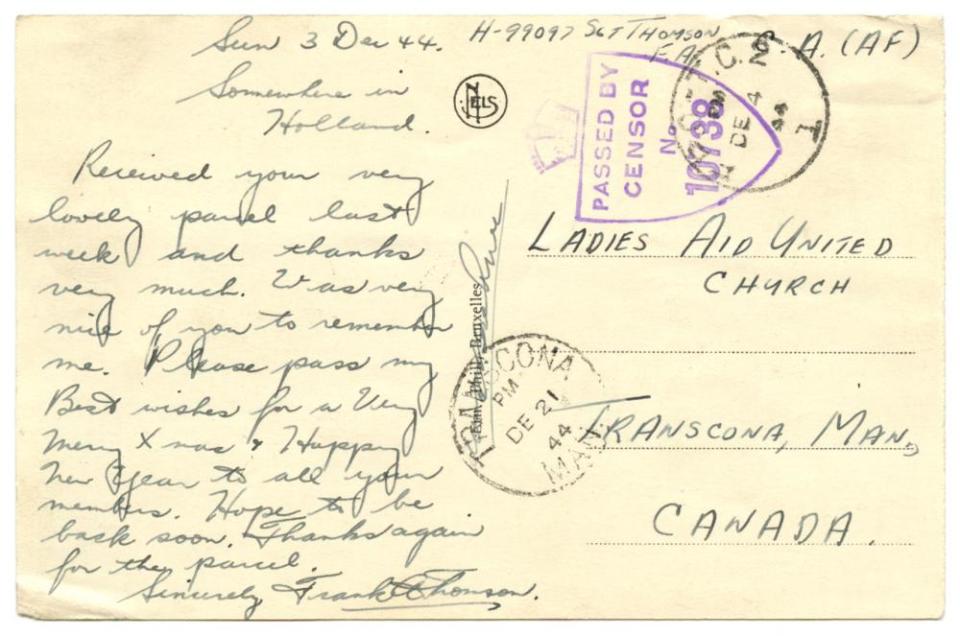 Sun 3 Dec 44.
Somewhere in
Holland.
Received your very
lovely parcel last
week and thanks
very much. Was very
nice of you to remember
me. Please pass my
Best wishes for a Very
merry Xmas & Happy
New Year to all your
members. Hope to be
back soon. Thanks again
for the parcel.
Sincerely Frank Thomson.
H-99097 SGT THOMSON
F.A.
C. A. (AF)
NELS
PASSED BY
CENSOR
No.
10738
PM
DE 4
44
1
LADIES AID UNITED
CHURCH
TRANSCONA, MAN,
CANADA.
Thill, Bruxelles
TRANSCONA
PM
DE 21
44
MAN